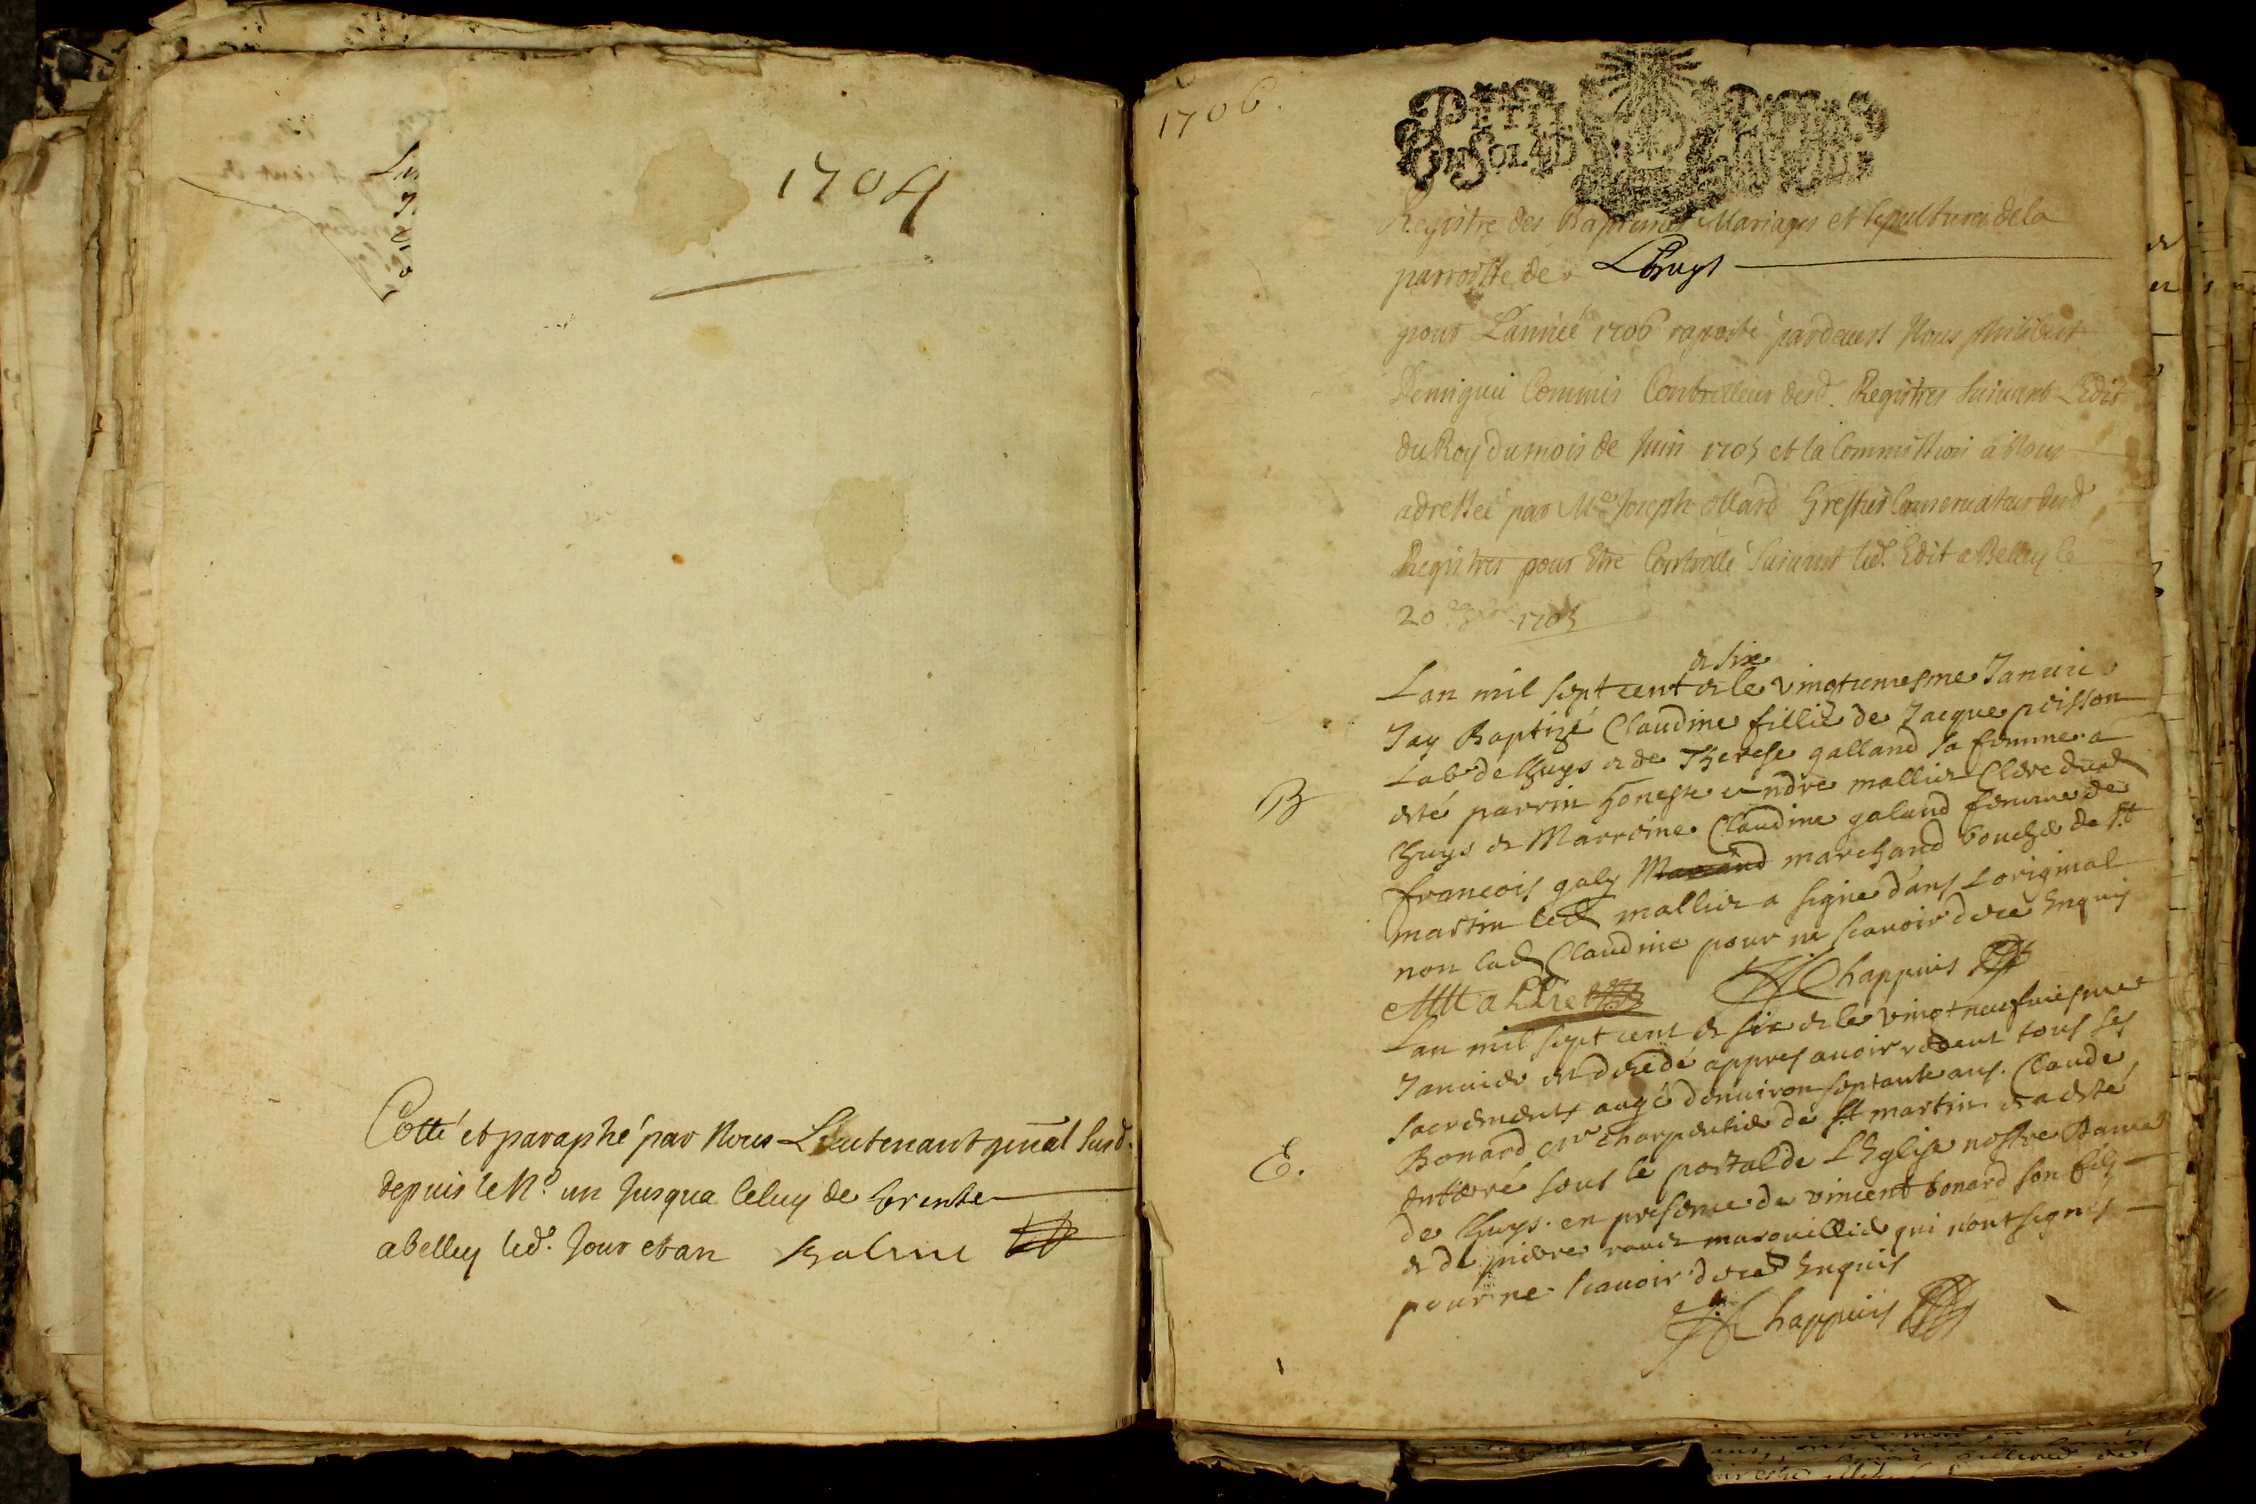 1704
Cotté et paraphé par Nous Lieutenant gnãl susd.
depuis le N.º un jusqua celuy de trente
a belley led. jour et an
1706.
Registre des Baptemes Mariages et sepultures de la
parroisse de Lhuys
pour L'année 1706 raporté pardevers Nous philibert
commis Controlleur desd. Registres suivant L'Edit
du Roy du mois de juin 1705 et la Commission à Nous
adressée par Me Joseph ollard Greffier Conservateur desd
Registres pour être Controllé suivant led. Edit a Belley le
20 1705
& six
Lan mil sept cent & le vingtuniesme Janvie
Jay Baptizé Claudine fillie de Jacque poisson
Lab. de lhuys & de Therese galland sa femme a
esté parrin honeste andre mallier Clerc dud
lhuys & Marreine Claudine galand femme de
francois galy Marcand marchand bouche de St
martin led mallier a signe dans Loriginal
non lad Claudine pour ne scavoir de ce Enquis
Mallier Chappuis
B
Lan mil sept cent & six & le vingt neufviesme
Janvier est decedé appres avoir receut tous ses
sacrements augé denviron septante ans. Claude
Bonard mr charpentier de St martin & a esté
Entérré sous le portal de LEglise nostre Dame
de lhuys. en presence de vincent bonard son filz
& de pierre ravet marguillier qui nont signes
pour ne scavoir de ce Enquis
Chappuis
E.
1